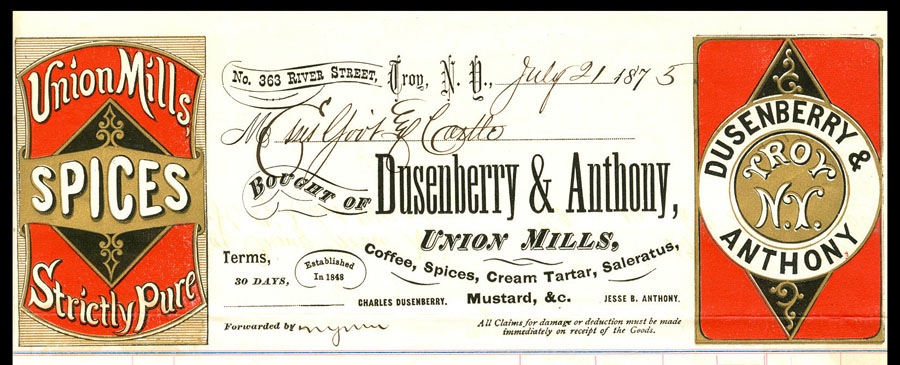 Union Mills,
SPICES
Strictly Pure
No. 363 RIVER STREET, Troy, N. Y., July 21 1875
M
BOUGHT OF Dusenberry & Anthony,
UNION MILLS,
Coffee, Spices, Cream Tartar, Saleratus,
Mustard, &c.
Terms,
30 DAYS,
Established
In 1848
CHARLES DUSENBERRY.
JESSE B. ANTHONY.
Forwarded by
All Claims for damage or deduction must be made
immediately on receipt of the Goods.
DUSENBERRY &
TROY
N.Y.
ANTHONY,